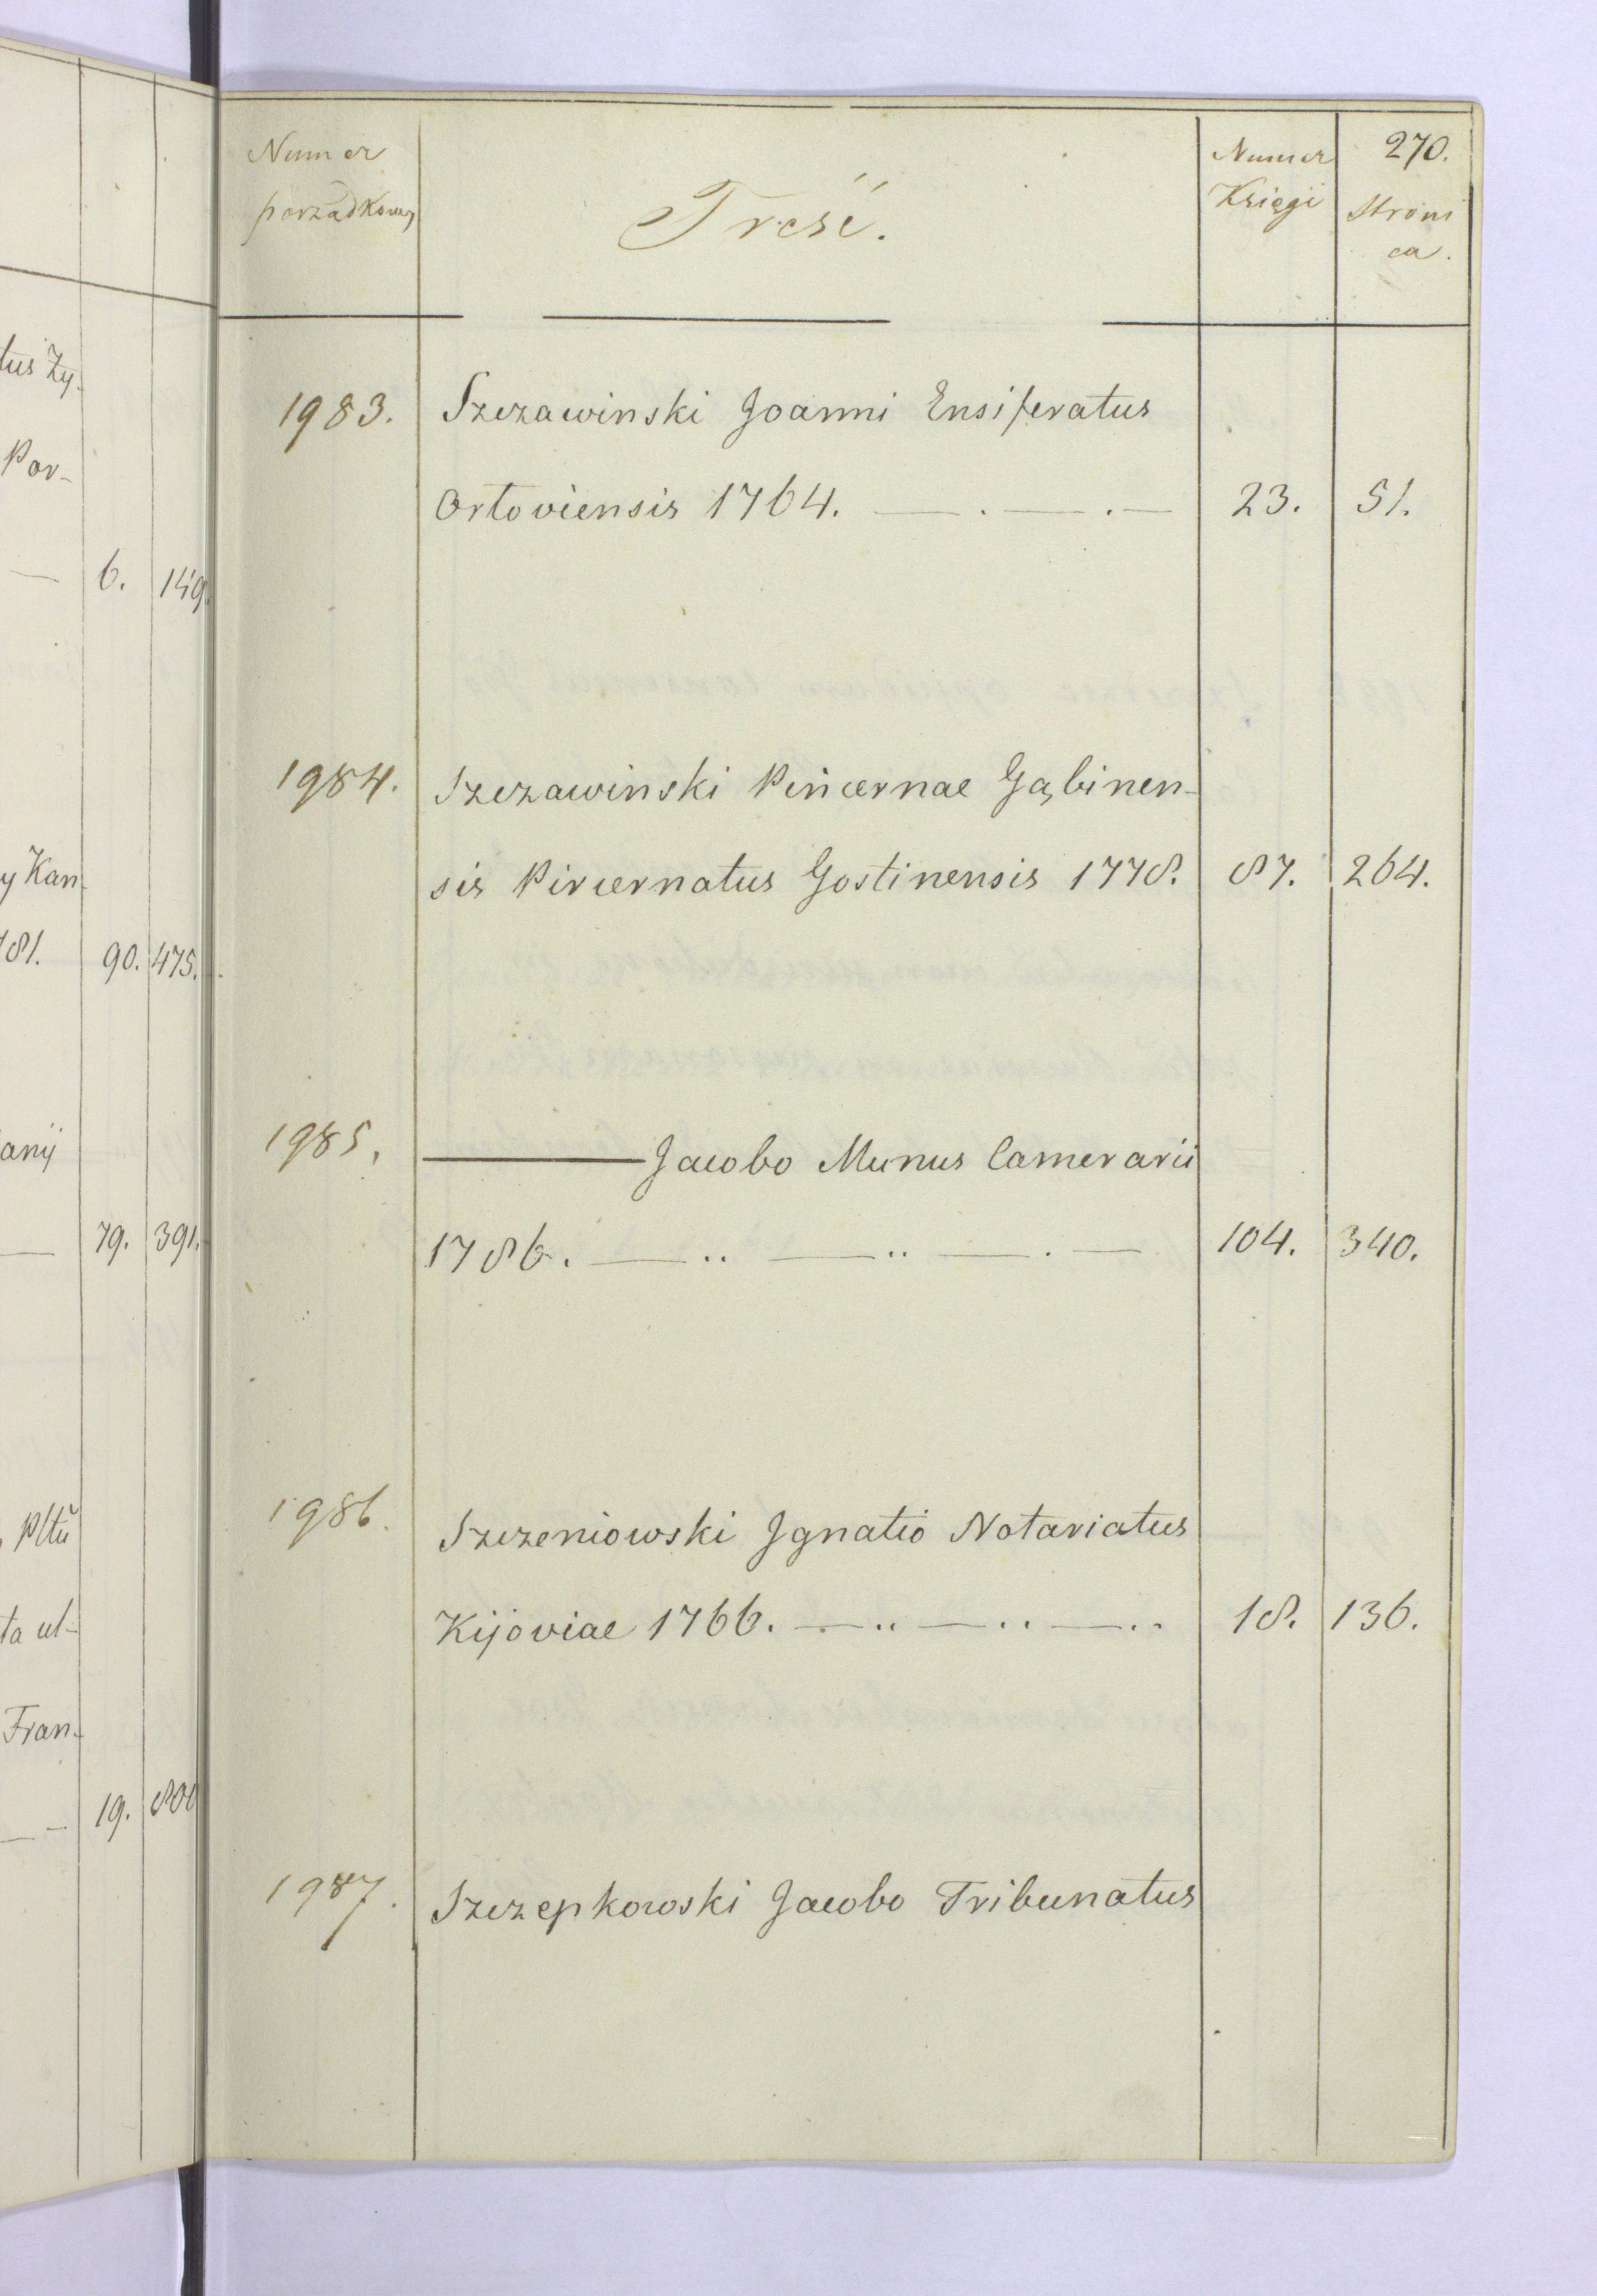 tus Zy-
Por-
— 6. 149.
y Kan-
781. 90. 475.
anij
— 79. 391.
Pltŭ
ta ul-
Fran-
— - 19.
270.
Numer porządkowy
Treść.
Numer Księgi
Stroni
ca.
1983. Szczawinski Joanni Ensiferatus
Ortoviensis 1764. — . — . — 23. 51.
1984. Szczawinski Pincernae Gąbinen-
sis Pircernatus Gostinensis 1778. 87. 264.
1985. ——— Jacobo Munus Camerarii
1786. — .. — .. — . — 104. 340.
1986. Szczeniowski Ignatio Notariatus
Kijoviae 1766. — .. — .. — .. 18. 136.
1987. Szczepkowski Jacobo Tribunatus